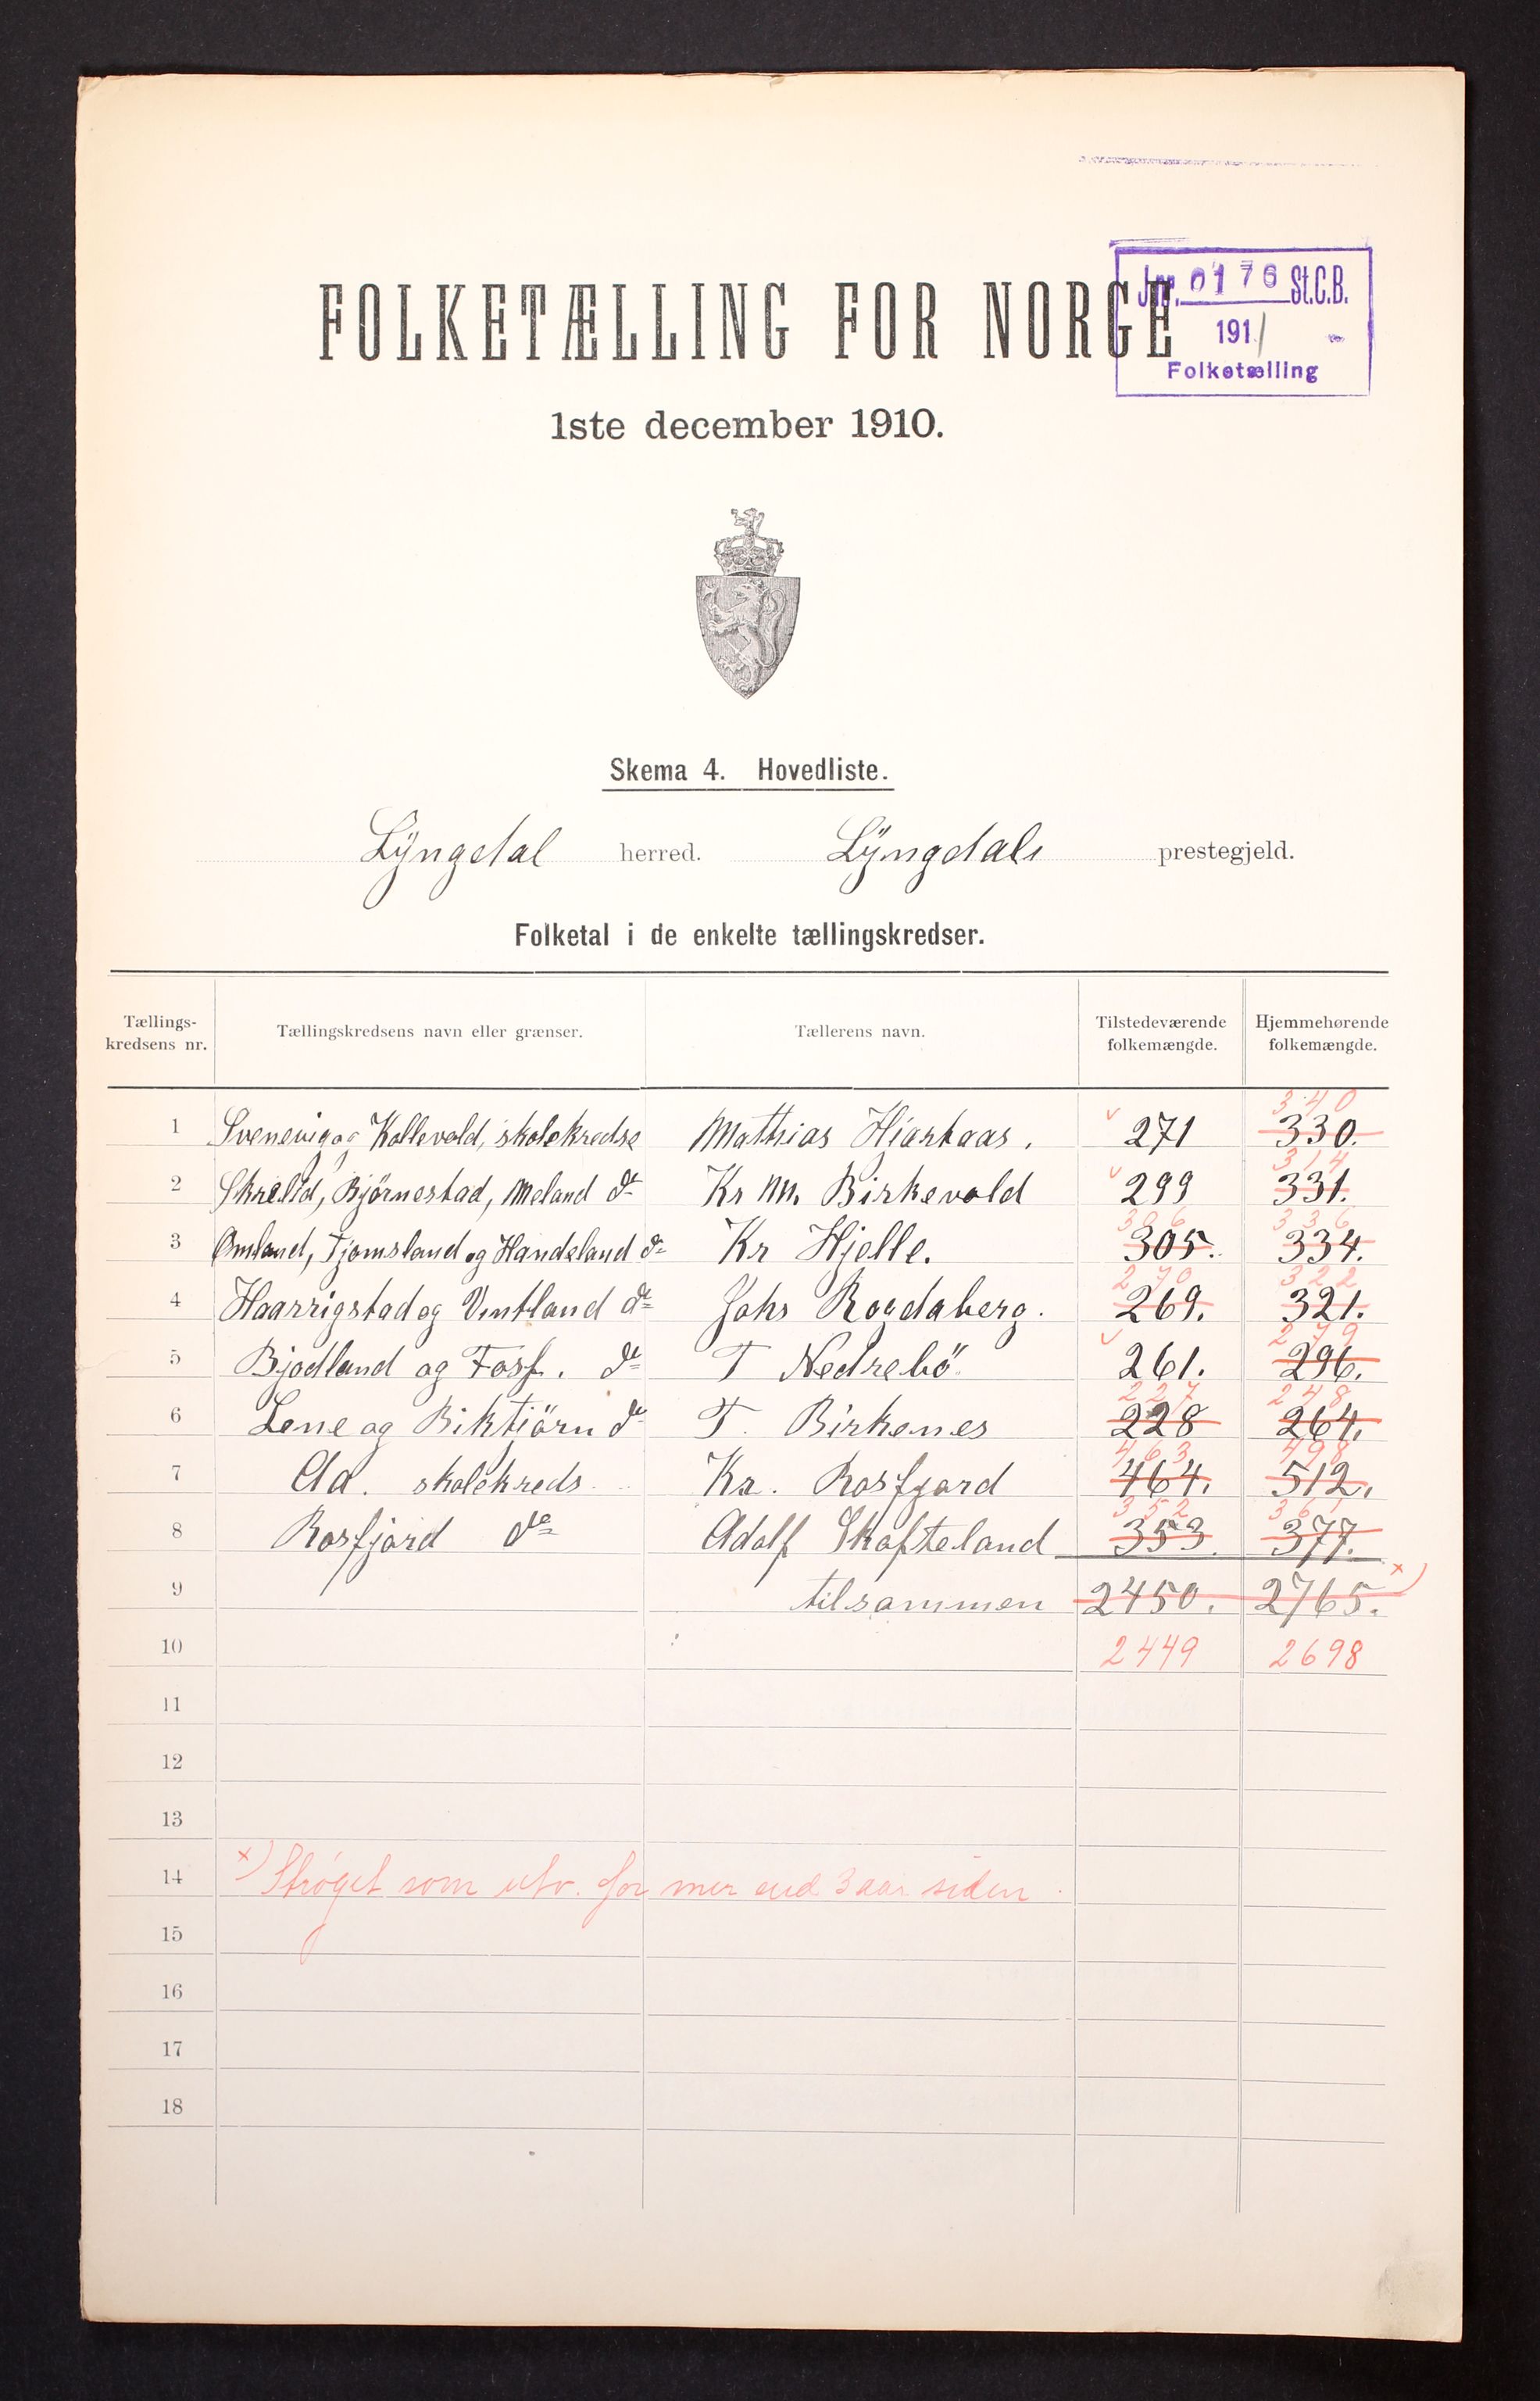 Jnr. 0176 St.C.B.
1911
Folketælling
FOLKETÆLLING FOR NORGE
1ste december 1910.
Skema 4. Hovedliste.
Lÿngdal herred. Lÿngdals prestegjeld.
Folketal i de enkelte tællingskredser.
Tællings-kredsens nr. Tællingskredsens navn eller grænser. Tællerens navn. Tilstedeværende folkemængde. Hjemmehørende folkemængde.
340
1 Svenevig og Kollevold, skolekredse Mathias Hjartaas. v 271 330.
314
2 Skrelid, Björnestad, Meland do Kr M. Birkevold v 299 331.
306 336
3 Omland, Tjomsland og Handeland do Kr Hjelle. 305. 334.
270 322
4 Haarrigstad og Vintland do Johs Rogdaberg. 269. 321.
279
5 Bjodland og Foss. do T Nedrebö v 261. 296.
227 248
6 Lene og Biktjörn do T. Birkenes 228 264.
463 498
7 Aa. skolekreds Kr. Rosfjord 464. 512.
352 361
8 Rosfjord do Adolf Skofteland 353. 377.
9 tilsammen 2450. 2765. x)
10 2449 2698
11
12
13
14 x) Strøget som utv. for mer end 3 aar siden.
15
16
17
18